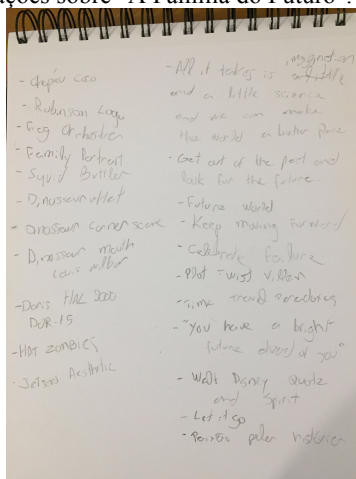 ações sobre "A Família do Futuro".
- chapéu coco
- Robinson Logo
- Frog Orchestra
- Family Portrait
- Squid Buttler
- Dinossaur
- Dinossaur corner scene
- Dinossaur mouth
- Doris HAL 9000
DOR-15
- HAT ZOMBIES
- Jetsons Aesthetic
- All it takes is imagination
and a little science
and we can make
the world a better place
- Get out of the past and
look for the future
- Future world
- Keep moving Forward
- Celebrate Failure
- Plot Twist Villan
- Time Travel
- "You have a bright
future ahead of you"
- Walt Disney Quote
and Spirit
- Let it go